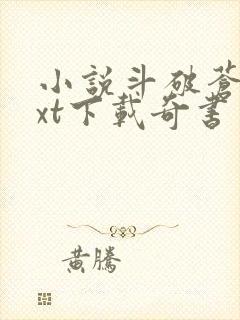 小說斗破蒼
xt下載奇書
黃騰